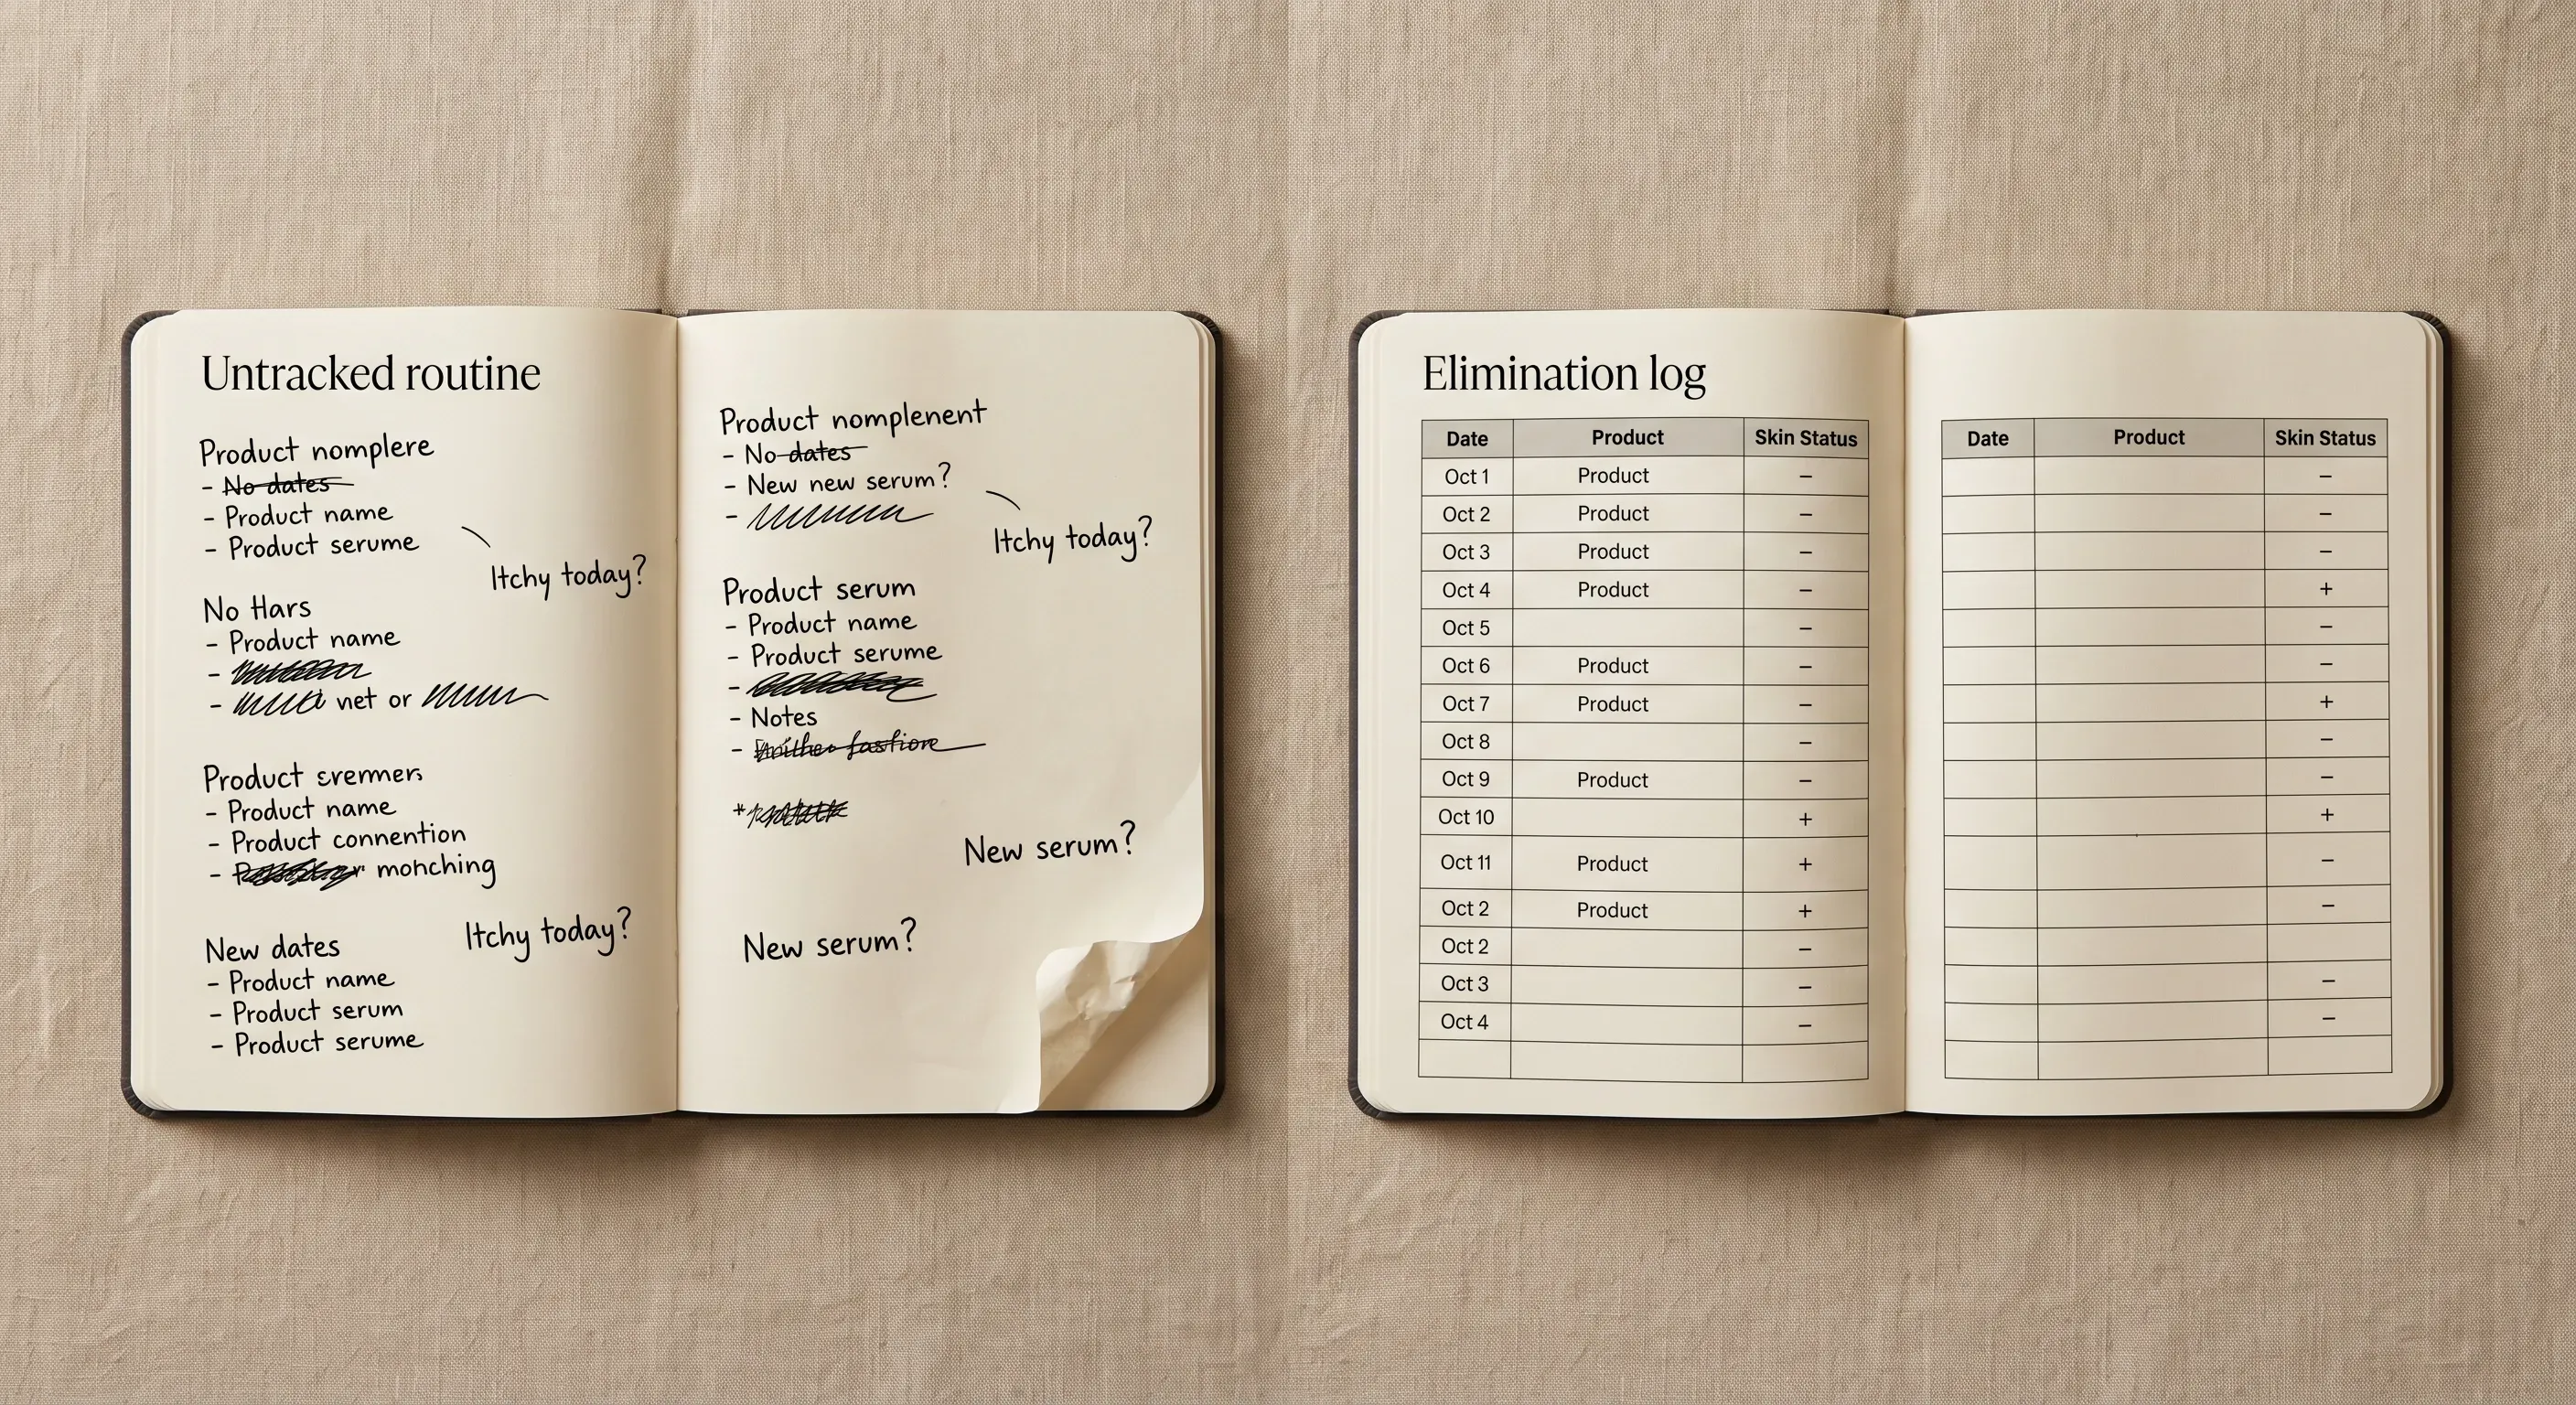 Untracked routine
Product nomplere
- No dates
- Product name
- Product serume
Itchy today?
No Hars
- Product name
-
- net or
Product
- Product name
- Product connention
- mohching
New dates
Itchy today?
- Product name
- Product serum
- Product serume
Product nomplenent
- No dates
- New new serum?
-
Itchy today?
Product serum
- Product name
- Product serume
-
- Notes
-
*
New serum?
New serum?
Elimination log
Date Product Skin Status
Oct 1 Product –
Oct 2 Product –
Oct 3 Product –
Oct 4 Product –
Oct 5 –
Oct 6 Product –
Oct 7 Product –
Oct 8 –
Oct 9 Product –
Oct 10 +
Oct 11 Product +
Oct 2 Product +
Oct 2 –
Oct 3 –
Oct 4 –
Date Product Skin Status
–
–
–
+
–
–
+
–
–
+
–
–
–
–